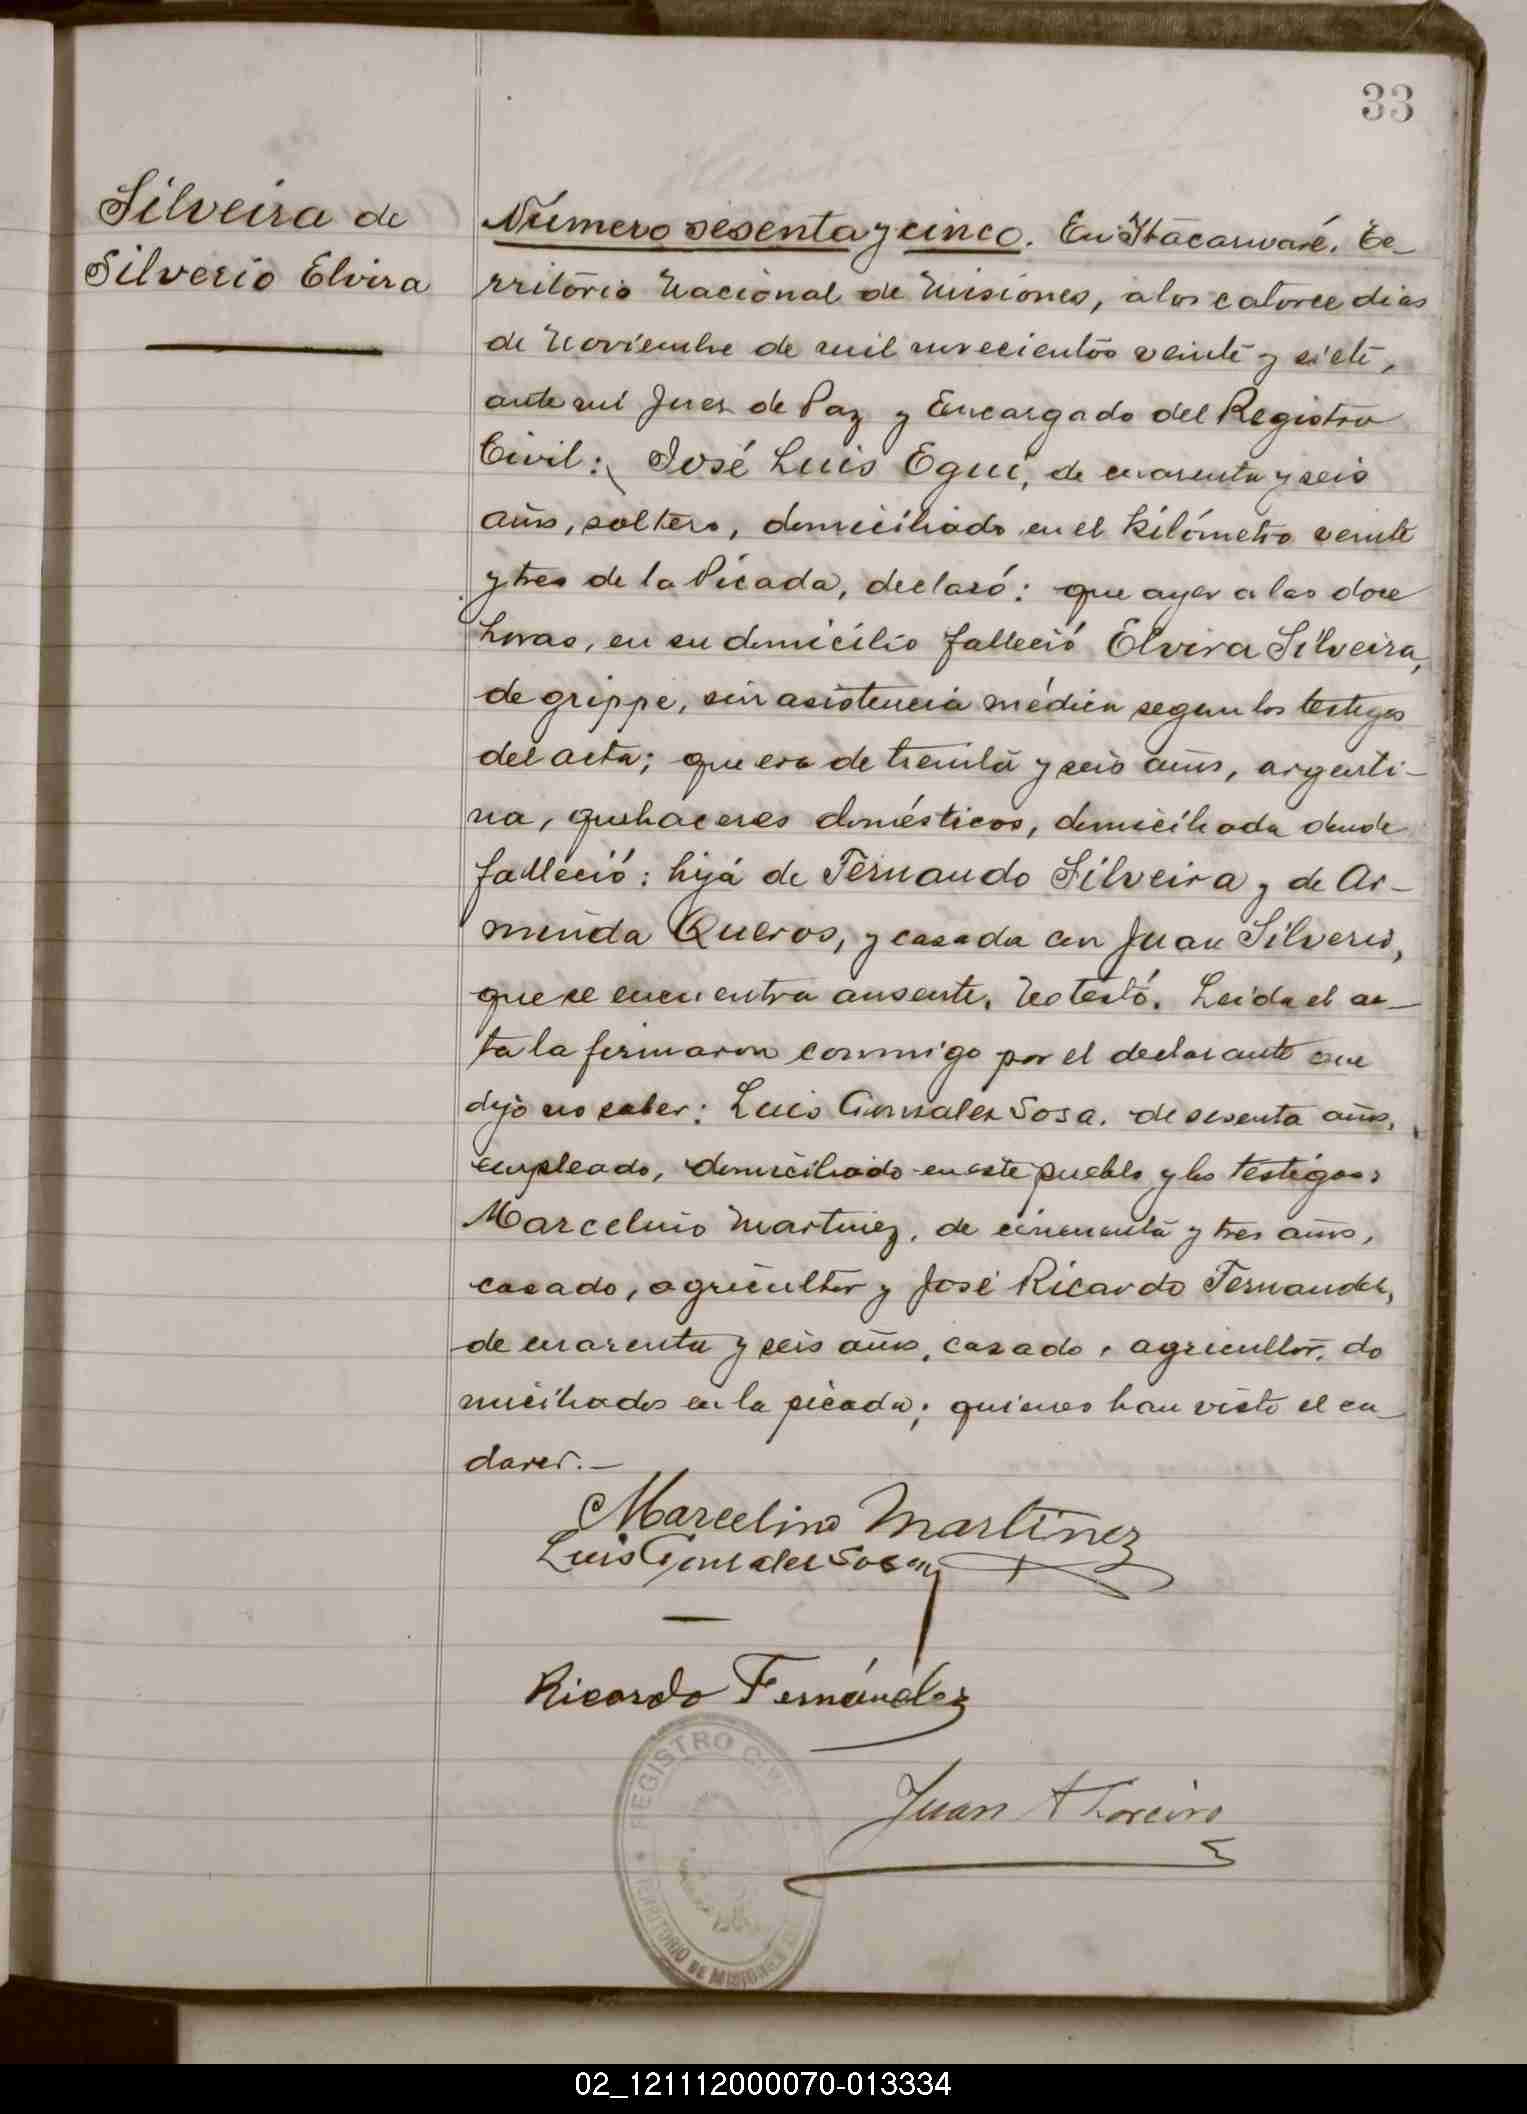 33
Silveira de
Silverio Elvira
Número sesenta y cinco. En Itacaruaré, Te-
rritorio Nacional de Misiones, a los catorce dias
de Noviembre de mil novecientos veinte y siete,
ante mi Juez de Paz y Encargado del Registro
Civil: José Luis Egui, de cuarenta y seis
años, soltero, domiciliado en el kilómetro veinte
y tres de la Picada, declaró: que ayer a las doce
horas, en su domicilio falleció Elvira Silveira,
de grippe, sin asistencia médica segun los testigos
del acta; que era de treinta y seis años, argenti-
na, quehaceres domésticos, domiciliada donde
falleció: hija de Fernando Silveira y de Ar-
minda Queros, y casada con Juan Silverio,
que se encuentra ausente. No testó. Leida el ac-
ta la firmaron conmigo por el declarante que
dijo no saber: Luis Gonzalez Sosa, de sesenta años,
empleado, domiciliado en este pueblo y los testigos:
Marcelino Martinez, de cincuenta y tres años,
casado, agricultor y José Ricardo Fernandez,
de cuarenta y seis años, casado, agricultor, do
miciliados en la picada; quienes han visto el ca-
daver.—
Marcelino Martinez
Luis Gonzalez Sosa
Ricardo Fernández
Juan A
REGISTRO CIVIL
TERRITORIO DE MISIONES
02_121112000070-013334